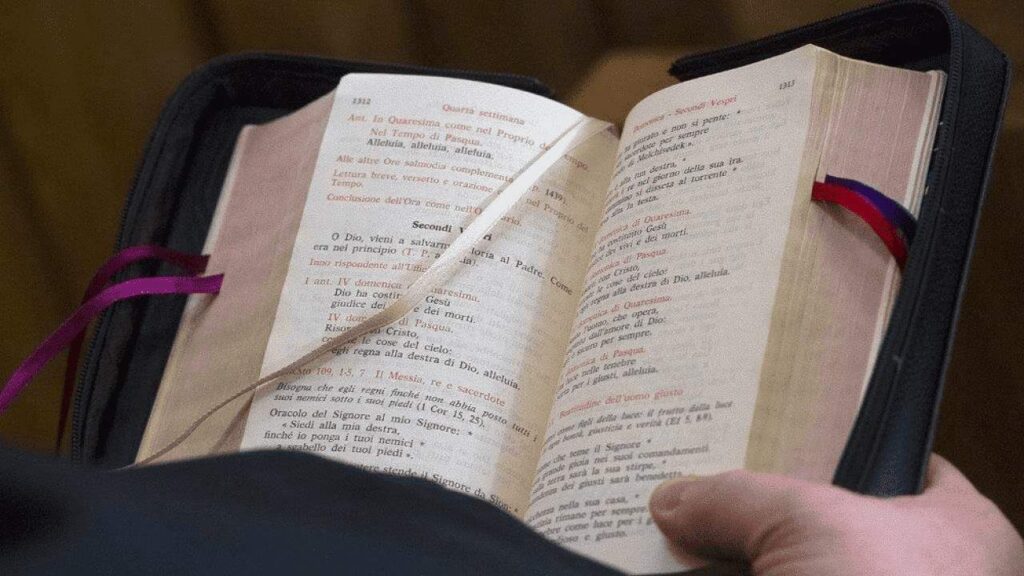 1312
Quarta settimana
Ant. In Quaresima come nel Proprio del Tempo.
Nel Tempo di Pasqua.
Alleluia, alleluia, alleluia.
Alle altre Ore salmodia complementa p. 1439.
Lettura breve, versetto e orazione nel Proprio del
Tempo.
Conclusione dell'Ora come nell'O
Secondi V ri
O Dio, vieni a salvarm oria al Padre. Come
era nel principio (T. P. a ia)
Inno rispondente all'Uffi
I ant. IV domenica aresima.
Dio ha costi Gesù
giudice dei e dei morti.
IV dom di Pasqua.
Riso Cristo,
ce le cose del cielo:
egli regna alla destra di Dio, alleluia.
109, 1-5, 7 Il Messia, re e sacerdote
Bisogna che egli regni finché non abbia posto tutti i
suoi nemici sotto i suoi piedi (1 Cor 15, 25).
Oracolo del Signore al mio Signore: *
« Siedi alla mia destra,
finché io ponga i tuoi nemici *
a sgabello dei tuoi piedi ».
stende il Signore da
- Secondi Vespri
1313
giurato e non si pente: *
sacerdote per sempre
di Melchisedek ».
è alla tua destra, *
i re nel giorno della sua ira.
si disseta al torrente *
la testa.
di Quaresima.
costituito Gesù
dei vivi e dei morti.
di Pasqua.
con Cristo,
le cose del cielo:
regna alla destra di Dio, alleluia.
di Quaresima.
l'uomo, che opera,
dall'amore di Dio:
sicuro per sempre.
di Pasqua.
luce nelle tenebre
per i giusti, alleluia.
Beatitudine dell'uomo giusto
come figli della luce: il frutto della luce
bontà, giustizia e verità (Ef 5, 89).
che teme il Signore *
grande gioia nei suoi comandamenti.
terra sarà la sua stirpe, *
dei giusti sarà benedetta.
nella sua casa, *
rimane per sempre
come luce per i
e giusto.